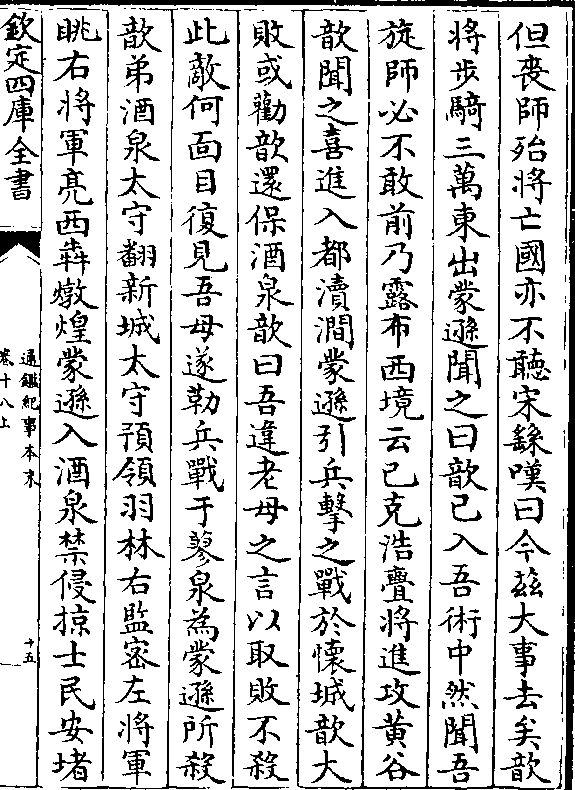 但喪師殆將亡國亦不聽宋繇嘆曰今兹大事去矣歆
將步騎三萬東出蒙遜聞之曰歆已入吾術中然聞吾
旋師必不敢前乃露布西境云已克浩亹將進攻黃谷
歆聞之喜進入都瀆澗蒙遜引兵擊之戰於懷城歆大
敗或勸歆還保酒泉歆曰吾違老母之言以取敗不殺
此敵何面目復見吾母遂勒兵戰于蓼泉為蒙遜所殺
歆弟酒泉太守翻新城太守預領羽林右監密左將軍
眺右將軍亮西犇燉煌蒙遜入酒泉禁侵掠士民安堵
欽定四庫全書
通鑑紀事本末
卷十八上
十五